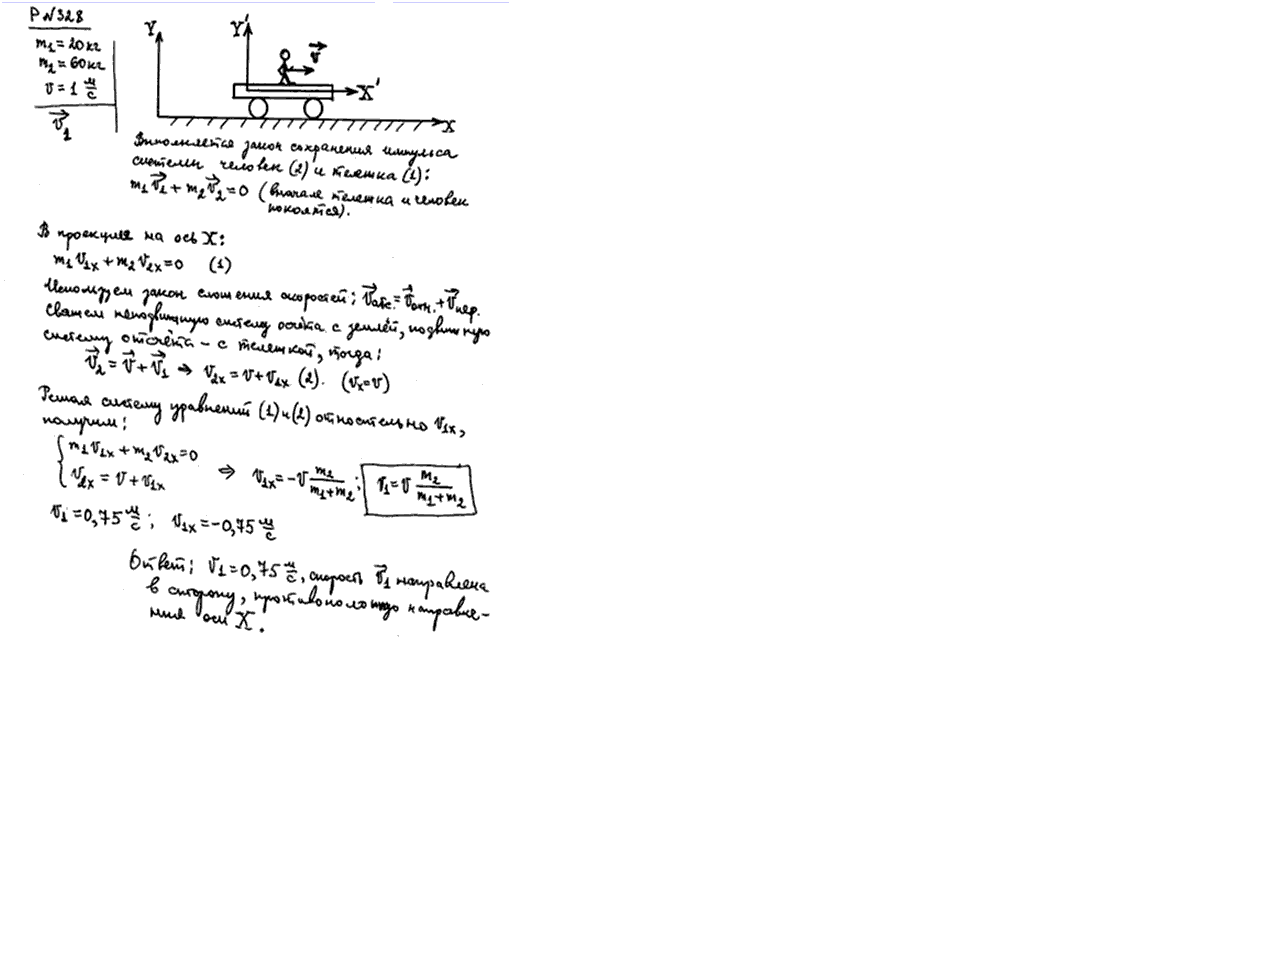 Р №328
m₁ = 20 кг
m₂ = 60 кг
v = 1 м/с
v⃗₁
Y Y' v⃗ X' X
Выполняется закон сохранения импульса
системы человек (2) и тележка (1):
m₁v⃗₁ + m₂v⃗₂ = 0 (вначале тележка и человек
покоятся).
В проекциях на ось X:
m₁v₁ₓ + m₂v₂ₓ = 0 (1)
Используем закон сложения скоростей: v⃗абс. = v⃗отн. + v⃗пер.
Свяжем неподвижную систему отсчёта с землёй, подвижную
систему отсчёта – с тележкой, тогда:
v⃗₂ = v⃗ + v⃗₁ → v₂ₓ = v + v₁ₓ (2). (vₓ = v)
Решая систему уравнений (1) и (2) относительно v₁ₓ,
получим:
{ m₁v₁ₓ + m₂v₂ₓ = 0
v₂ₓ = v + v₁ₓ ⇒ v₁ₓ = -v m₂/(m₁+m₂); v₁ = v m₂/(m₁+m₂)
v₁ = 0,75 м/с; v₁ₓ = -0,75 м/с
Ответ: v₁ = 0,75 м/с, скорость v⃗₁ направлена
в сторону, противоположную направле-
ния оси X.